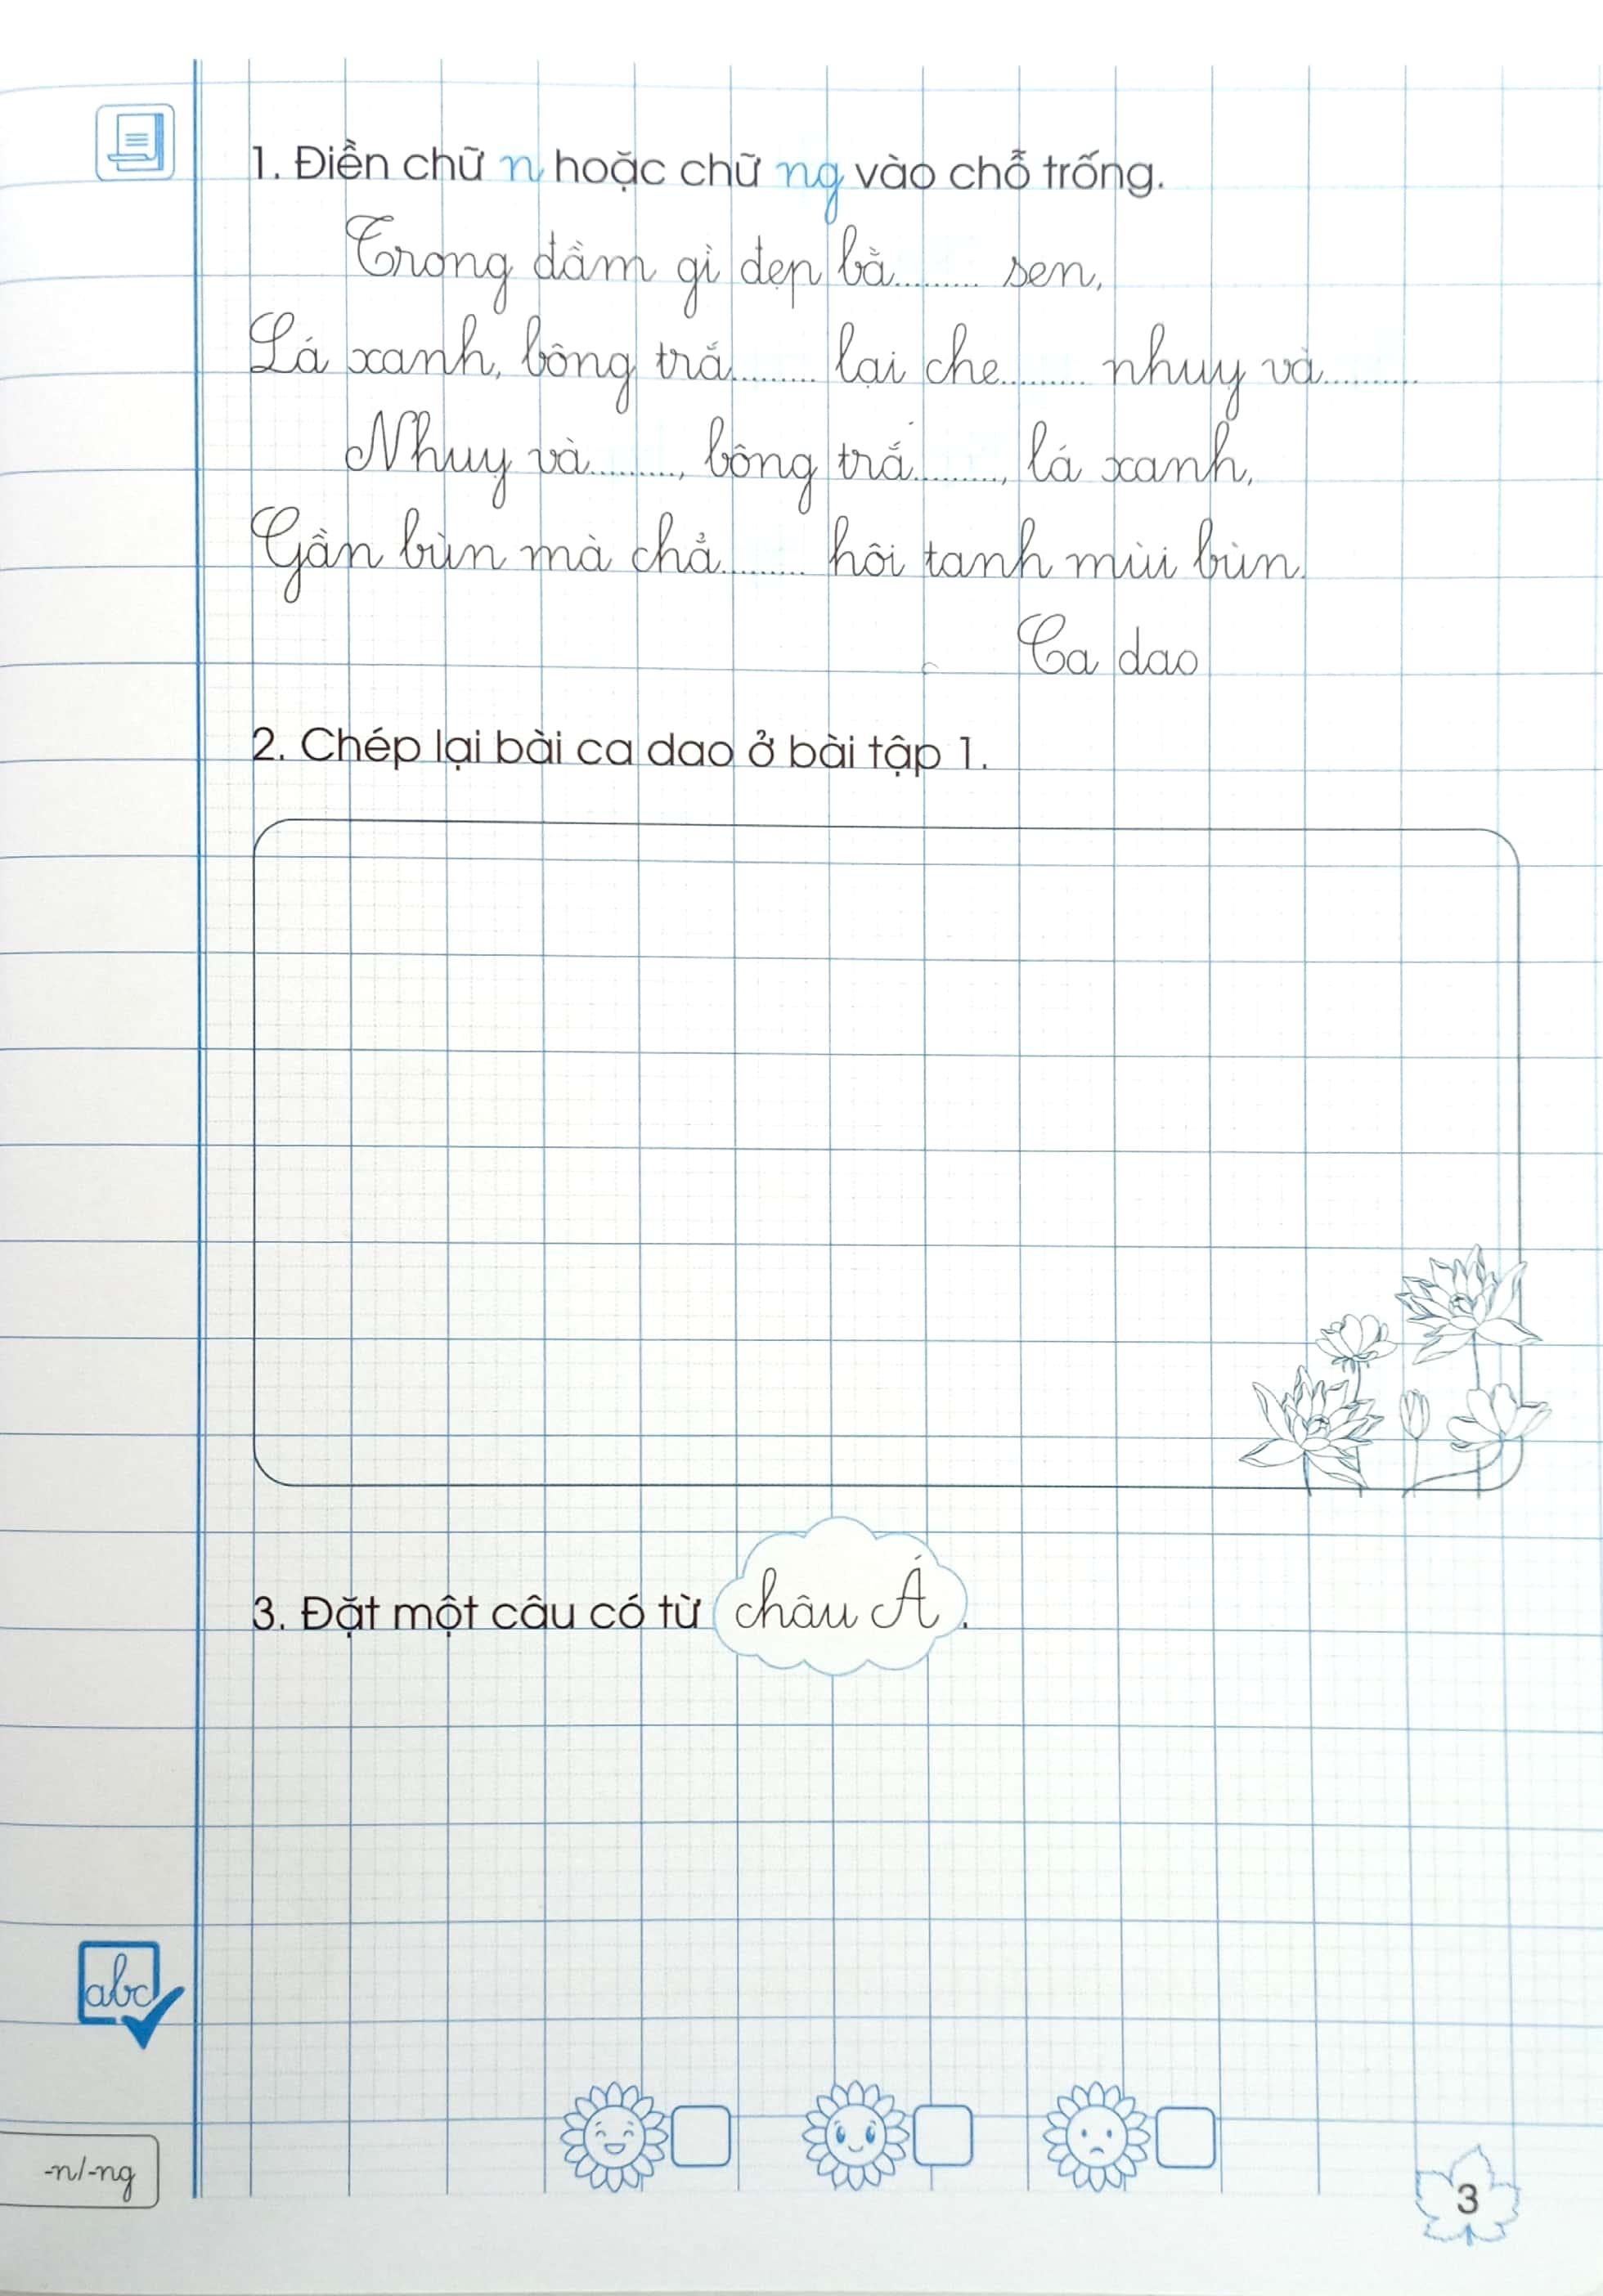 1. Điền chữ n hoặc chữ ng vào chỗ trống.
Trong đầm gì đẹp bằ......... sen,
Lá xanh, bông trắ......... lại che......... nhuỵ và..........
Nhuỵ và........., bông trắ........., lá xanh,
Gần bùn mà chẳ......... hôi tanh mùi bùn.
Ca dao
2. Chép lại bài ca dao ở bài tập 1.
3. Đặt một câu có từ châu Á.
abc
-n/-ng
3